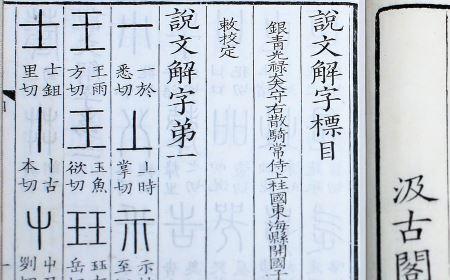 汲古閣
說文解字標目
銀青光祿大夫守右散騎常侍上柱國東海縣開國
敕校定
說文解字弟一
一 一於悉切 丄 丄時掌切 示 示 至
王 王雨方切 王 玉魚欲切 玨 岳切
士 士鉏里切 丨 丨古本切 屮 屮